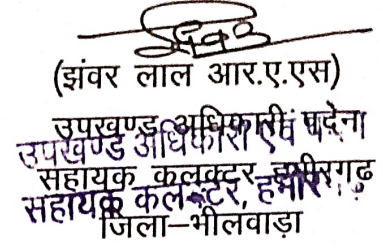 (झंवर लाल आर.ए.एस)
उपखण्ड अधिकारी पदेन
उपखण्ड अधिकारी एवं
सहायक कलक्टर हमीरगढ़
सहायक कलक्टर, हमीरगढ़
जिला–भीलवाड़ा